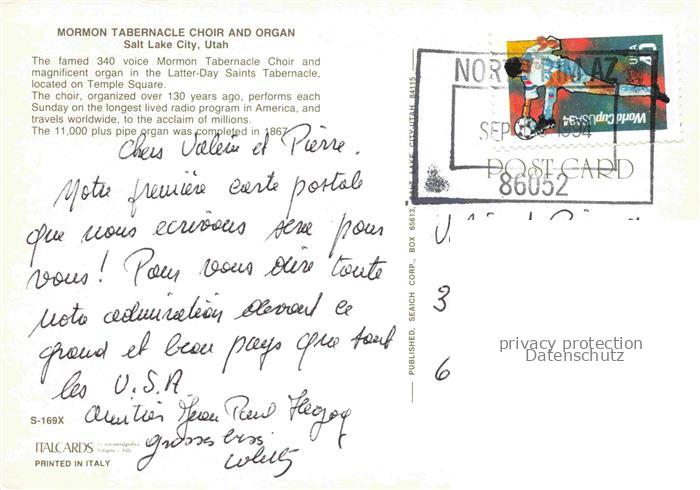 MORMON TABERNACLE CHOIR AND ORGAN
Salt Lake City, Utah
The famed 340 voice Mormon Tabernacle Choir and
magnificent organ in the Latter-Day Saints Tabernacle,
located on Temple Square.
The choir, organized over 130 years ago, performs each
Sunday on the longest lived radio program in America, and
travels worldwide, to the acclaim of millions.
The 11,000 plus pipe organ was completed in 1867.
Chers Valérie et Pierre.
Notre première carte postale
que nous ecrivons sera pour
vous! Pour vous dire toute
notre admiration devant ce
grand et beau pays que sont
les U.S.A
Amitiés Jean Paul
grosses bises
S-169X
ITALCARDS
PRINTED IN ITALY
PUBLISHED, SEAICH CORP., BOX 65613, SALT LAKE CITY, UTAH 84115
NORTH RIM AZ
SEP 1994
86052
POST CARD
World Cup USA 94
USA
40
3
6
privacy protection
Datenschutz